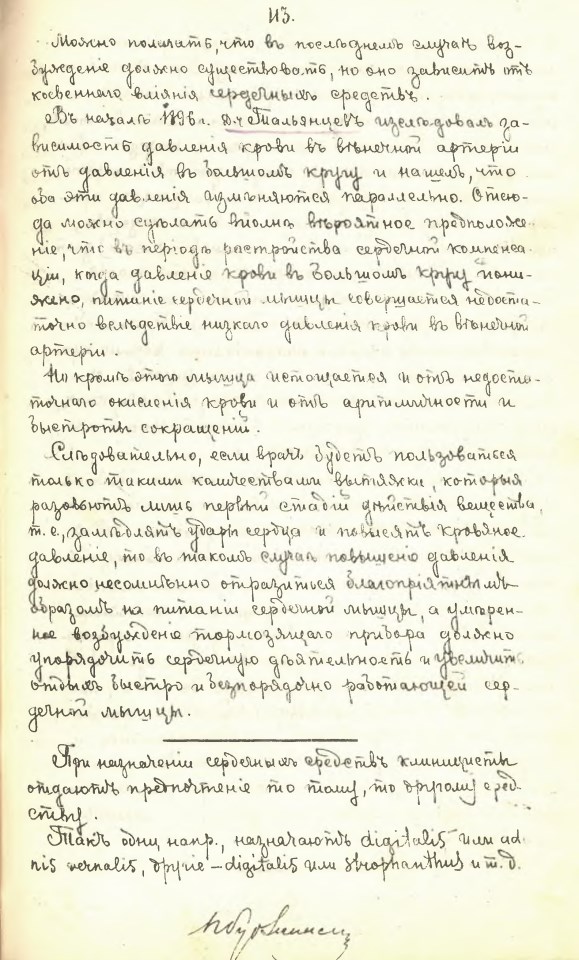 113.
Можно полагать, что въ послѣднемъ случаѣ воз-
бужденіе должно существовать, но оно зависитъ отъ
косвеннаго вліянія сердечныхъ средствъ.
Въ началѣ 1896 г. д-ръ Тальянцевъ изслѣдовалъ за-
висимость давленія крови въ вѣнечной артеріи
отъ давленія въ большомъ кругу и нашелъ, что
оба эти давленія измѣняются параллельно. Отсю-
да можно сдѣлать вполнѣ вѣроятное предположе-
ніе, что въ періодъ растройства сердечной компенса-
ціи, когда давленіе крови въ большомъ кругу пони-
жено, питаніе сердечной мышцы совершается недоста-
точно вслѣдствіе низкаго давленія крови въ вѣнечной
артеріи.
Но кромѣ этого мышца истощается и отъ недоста-
точнаго окисленія крови и отъ аритмичности и
быстроты сокращеній.
Слѣдовательно, если врачъ будетъ пользоваться
только такими количествами вытяжки, которыя
разовьютъ лишь первый стадій дѣйствія вещества,
т.е., замедлятъ удары сердца и повысятъ кровяное
давленіе, то въ такомъ случаѣ повышеніе давленія
должно несомнѣнно отразиться благопріятнымъ
образомъ на питаніи сердечной мышцы, а умѣрен-
ное возбужденіе тормозящаго прибора должно
упорядочить сердечную дѣятельность и увеличить
отдыхъ быстро и безпорядочно работающей сер-
дечной мышцы.
При назначеніи сердечныхъ средствъ клиницисты
отдаютъ предпочтеніе то тому, то другому сред-
ству.
Такъ одни, напр., назначаютъ digitalis или ado-
nis vernalis, другіе – digitalis или strophanthus и т.д.